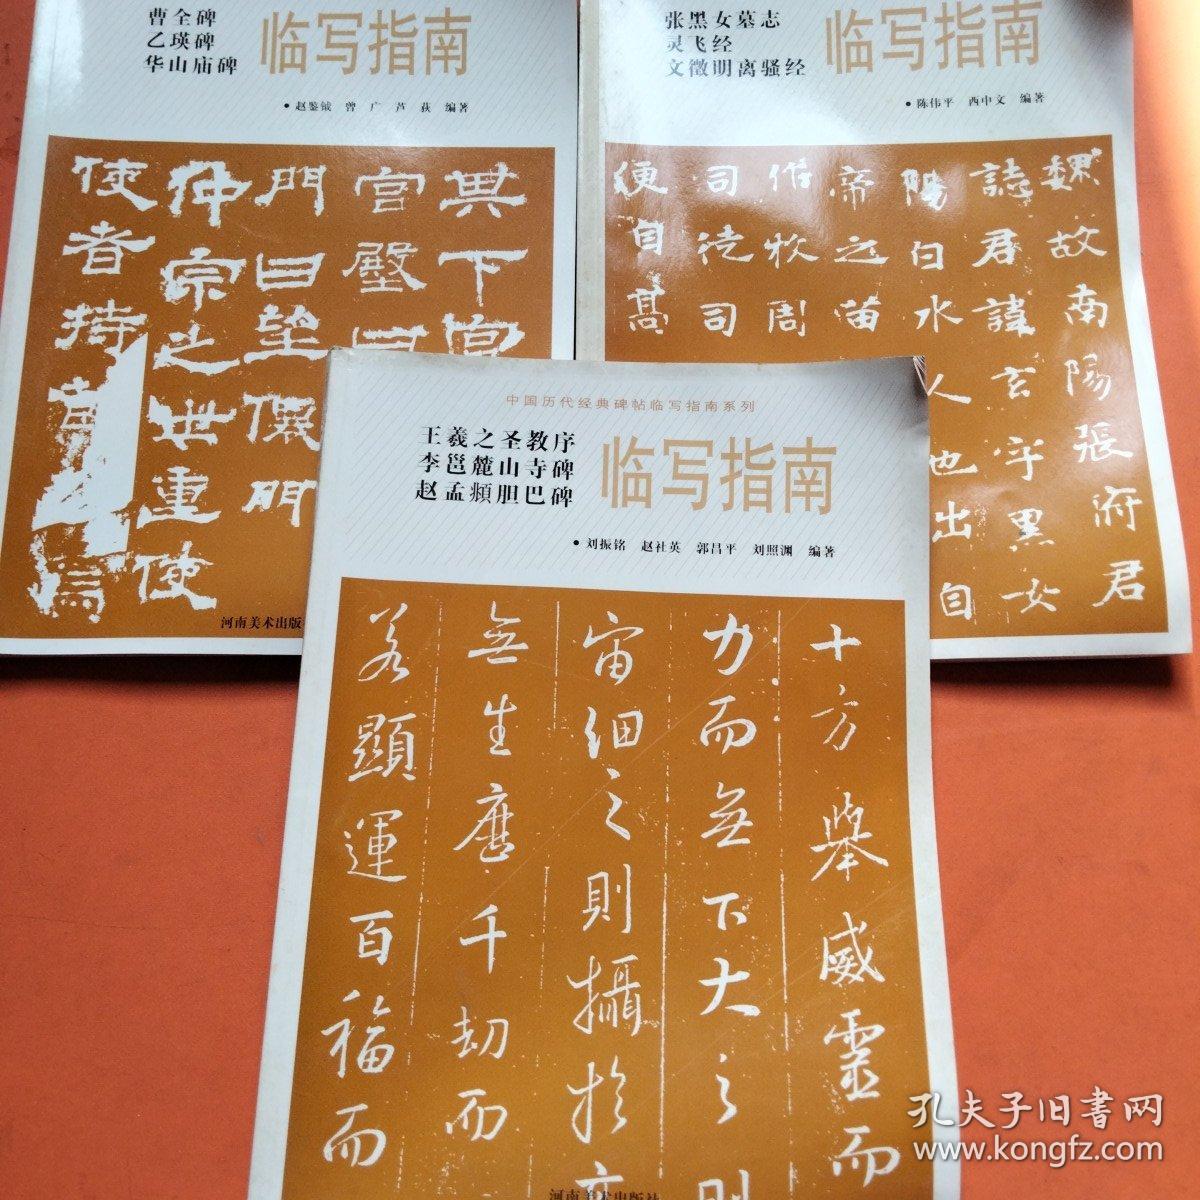 曹全碑
乙瑛碑
华山庙碑
临写指南
•赵鉴钺 曾广 芦荻 编著
其下宫
宫壂曰
門曰望僊門
仲宗之世重使
使者持節
河南美术出版
张黑女墓志
灵飞经
文徵明离骚经
临写指南
•陈伟平 西中文 编著
魏故南陽張府君
誌君諱玄字黑女
陽白水人也出自
帝之苗
周
司徒司
便自高
中国历代经典碑帖临写指南系列
王羲之圣教序
李邕麓山寺碑
赵孟頫胆巴碑
临写指南
•刘振铭 赵社英 郭昌平 刘照渊 编著
十方舉威靈而
力而無下大之則
宙細之則攝於
無生歷千劫而
若顯運百福而
河南美术出版社
孔夫子旧书网
www.kongfz.com